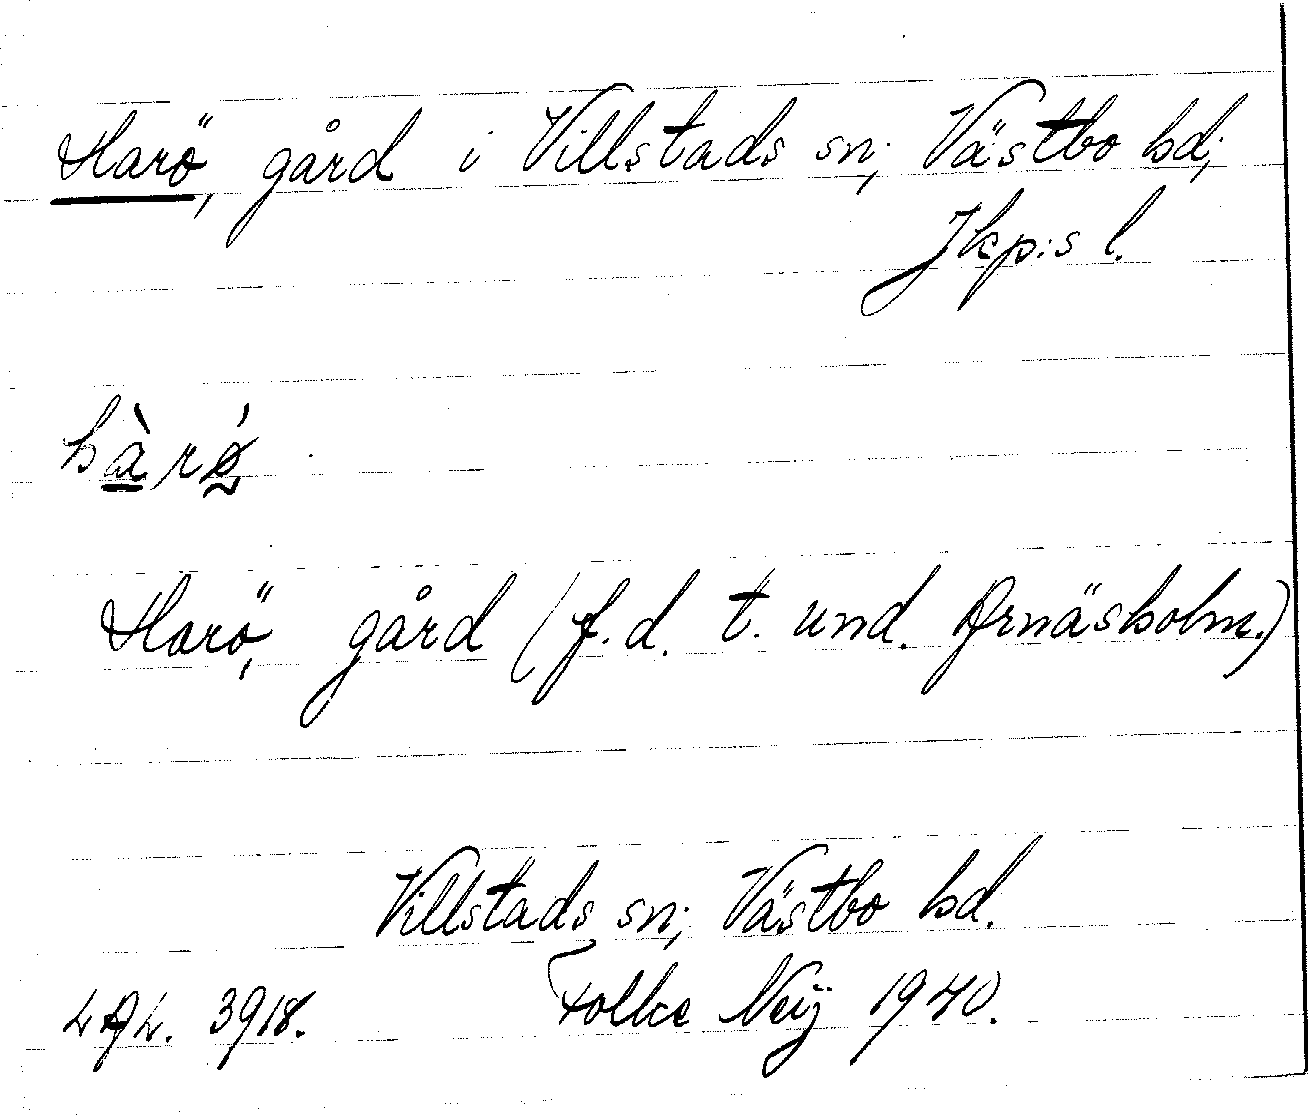 Harö, gård i Villstads sn; Västbo hd;
Jkp:s l.
hàrǿ
Harö, gård (f.d. t. und. Arnäsholm.)
Villstads sn; Västbo hd.
LAL. 3918. Folke Neij 1940.